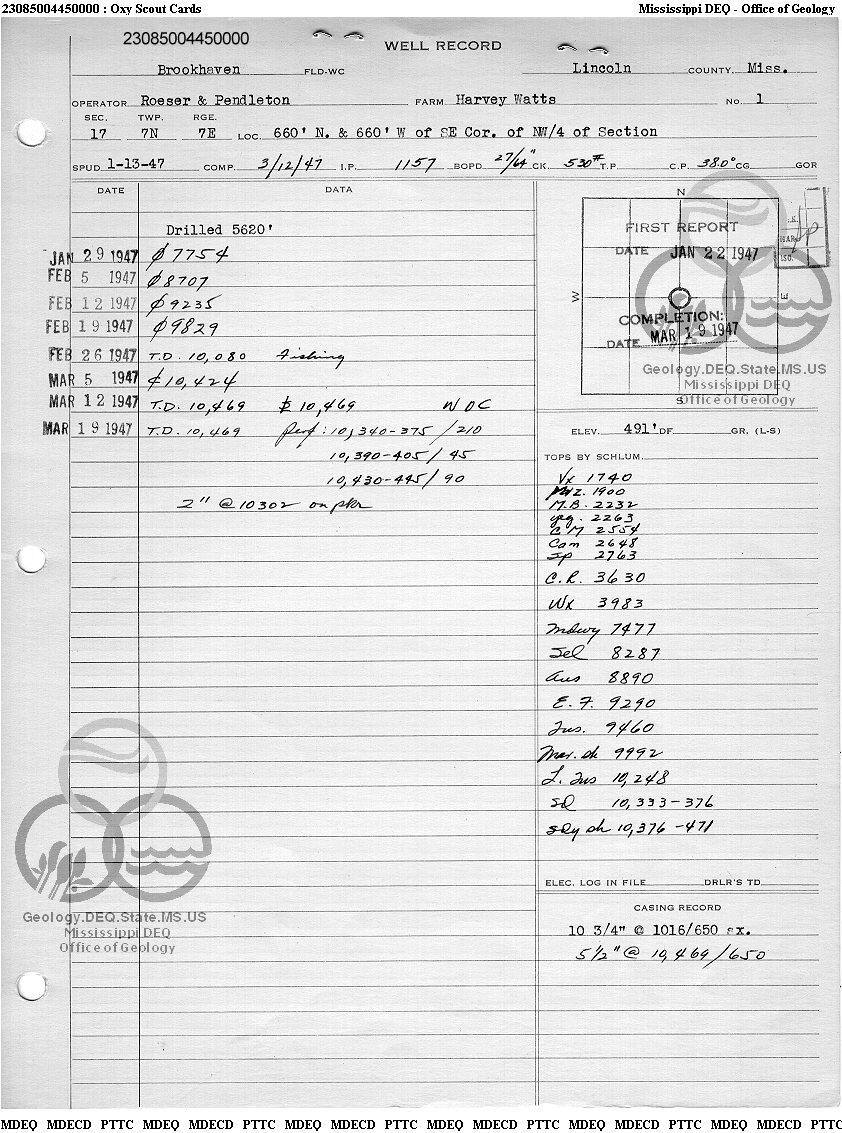 23085004450000 : Oxy Scout Cards Mississippi DEQ - Office of Geology
23085004450000
WELL RECORD
Brookhaven FLD-WC Lincoln COUNTY Miss.
OPERATOR Roeser & Pendleton FARM Harvey Watts No. 1
SEC. TWP. RGE.
17 7N 7E LOC. 660' N. & 660' W of SE Cor. of NW/4 of Section
SPUD 1-13-47 COMP. 3/12/47 I.P. 1157 BOPD 27/64" CK. 530# T.P. C.P. 38.0° CG GOR
DATE DATA
Drilled 5620'
JAN 29 1947 ₵ 7754
FEB 5 1947 ₵ 8707
FEB 12 1947 ₵ 9235
FEB 19 1947 ₵ 9829
FEB 26 1947 T.D. 10,080 Fishing
MAR 5 1947 ₵ 10,424
MAR 12 1947 T.D. 10,469 10,469 WOC
MAR 19 1947 T.D. 10,469 Perf: 10,340-375 /210
10,390-405 / 45
10,430-445 / 90
2" @ 10302 on pkr
N
FIRST REPORT
DATE JAN 22 1947
W E
COMPLETION:
DATE MAR 19 1947
S
Geology.DEQ.State.MS.US
Mississippi DEQ
Office of Geology
ELEV. 491' DF GR. (L-S)
TOPS BY SCHLUM.
Vx 1740
Mz. 1900
M.B. 2232
Yeg. 2263
C M 2554
Cam 2648
Sp 2763
C.R. 3630
Wx 3983
Mdwy 7477
Sel 8287
Aus 8890
E. F. 9290
Tus. 9460
Mar. sh 9992
L. Tus 10,248
SD 10,333-376
sdy sh 10,376-471
ELEC. LOG IN FILE DRLR'S TD
CASING RECORD
10 3/4" @ 1016/650 sx.
5 1/2" @ 10,469/650
Geology.DEQ.State.MS.US
Mississippi DEQ
Office of Geology
MDEQ MDECD PTTC MDEQ MDECD PTTC MDEQ MDECD PTTC MDEQ MDECD PTTC MDEQ MDECD PTTC MDEQ MDECD PTTC